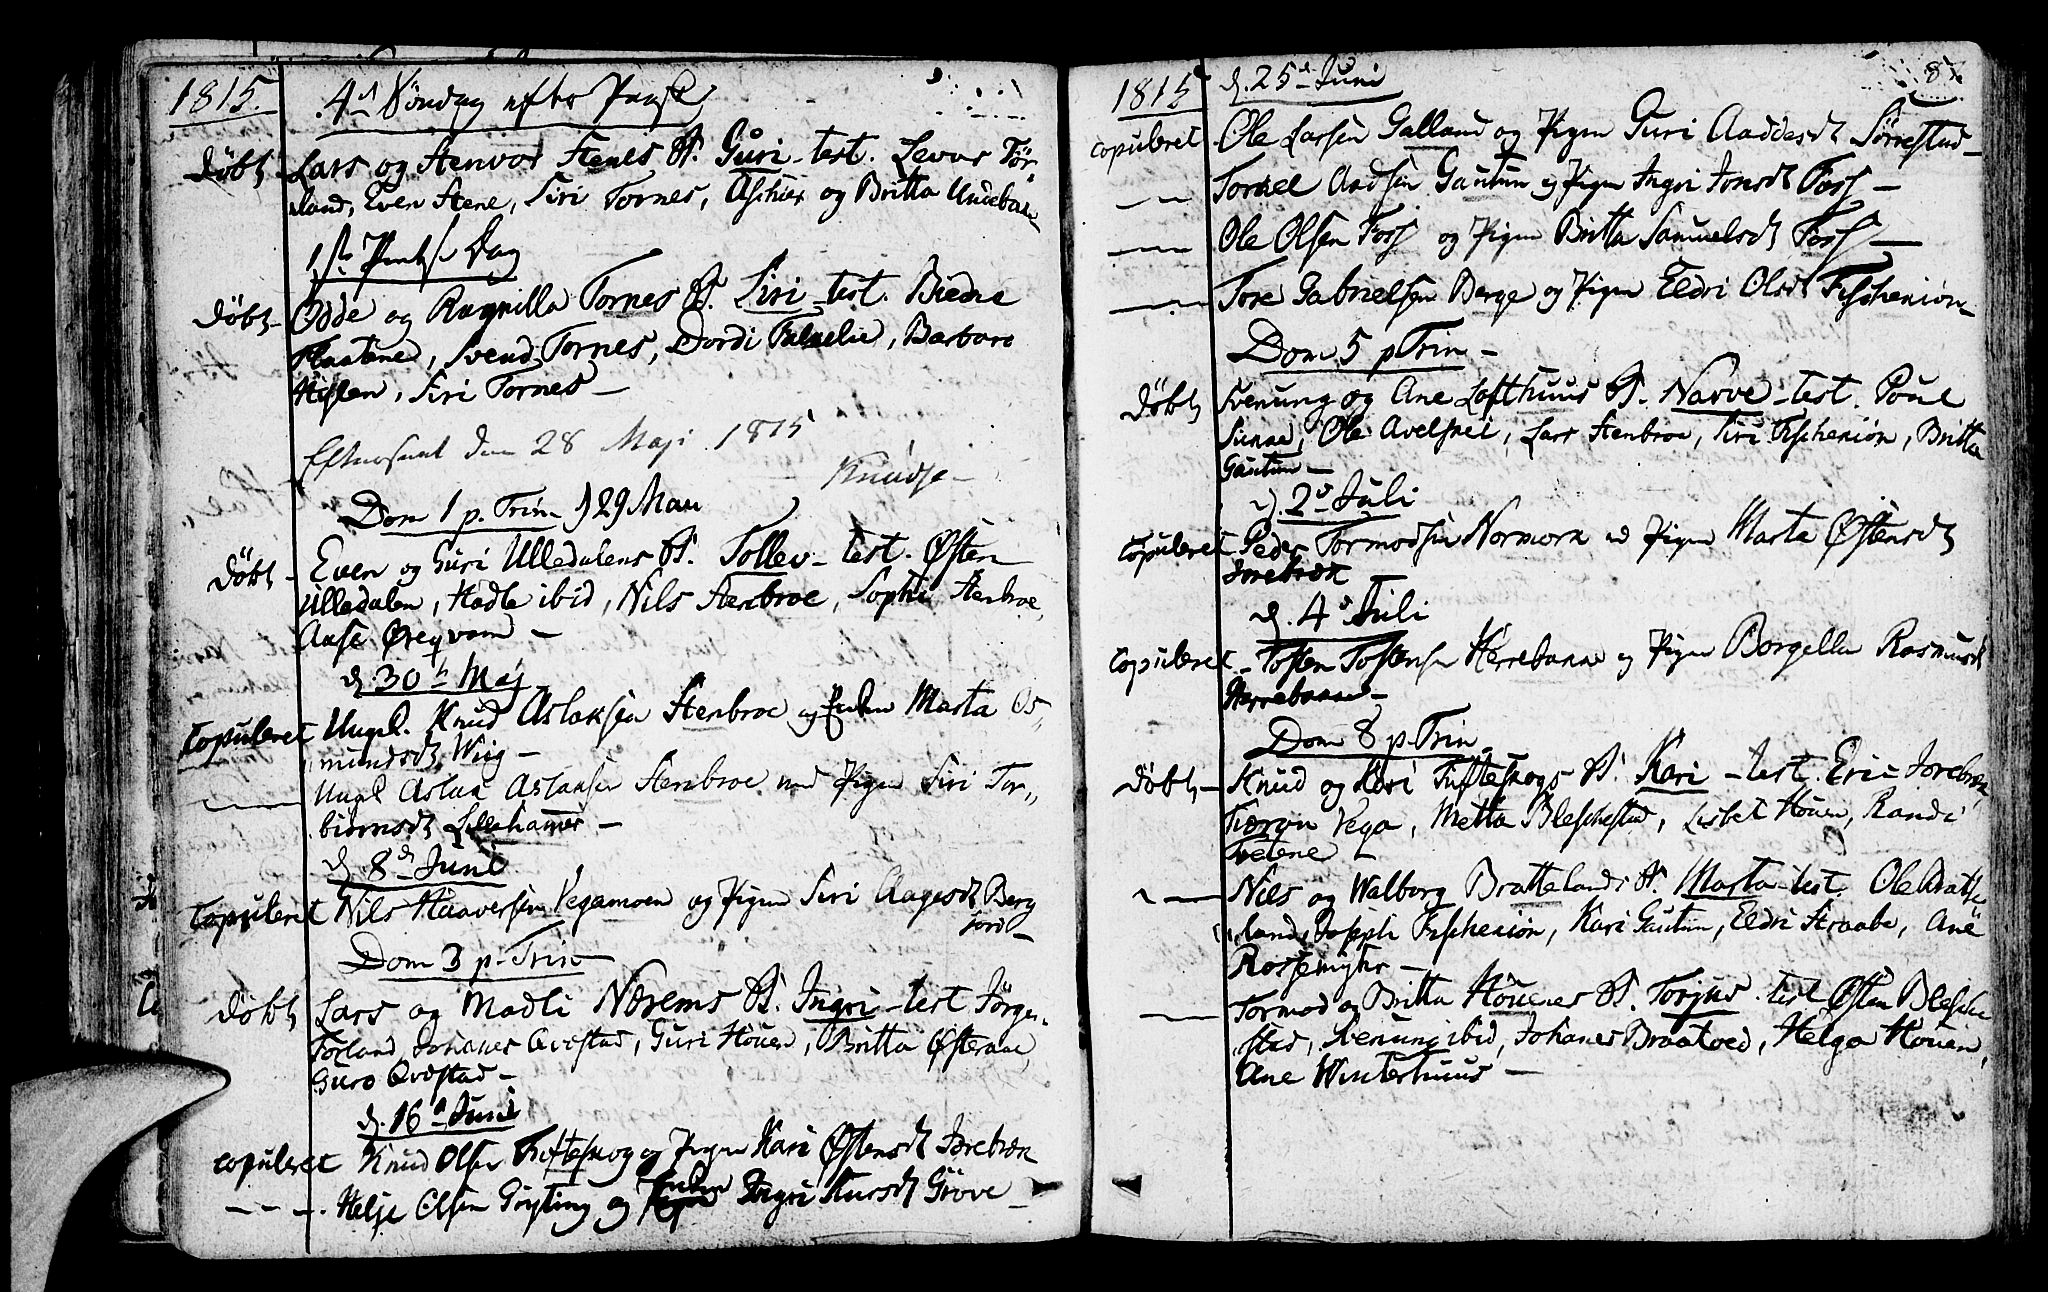 1815.
4d Søndag efter Paask
døbt Lars og Stenvor Stenes B. Guri - test. Levor Tør-
land, Even Stene, Siri Tornes, Aschier og Britta Undebak
1ste Pintse Dag
døbt - Odde og Ragnilla Tornes B. Siri - test.
Flaatene, Svend Tornes, Dordi, Barbara
Siri Tornes -
den 28 Maji 1815
Knudse
Dom 1 p. Trin
døbt - Even og Guri Ulledalens B. Tollev - test. Østen
Ulledalen, Hadle ibid, Nils Stenbroe, Sophi Stenbroe,
Aase Øregvam -
d. 30te Maj
copuleret Ungk. Knud Aslaksen Stenbroe og Enken Marta Os-
mundsdt Wiig -
Ungk Aslak Aslaksen Stenbroe med Pigen Siri Tor-
biornsdt Lillehamer -
d. 8de Juni
copuleret Nils Haaversen Vegamoen og Pigen Siri Aagesdt Berg
Jord -
Dom 3 p. Trin
døbt Lars og Madli Nærems B. Ingri - test Jørgen
Torland, Johanes Qvæstad, Guri Houen, Britta Østeraae,
Guro Qvæstad -
d. 16d Juni
copuleret Knud Olsen Tufteskog og Pigen Kari Østensdt Jorebræk
- - - Helje Olsen Gryting og Enken Ingri Grove -
87
1815
d. 25d Juni
copuleret Ole Larsen Galland og Pigen Guri Aaddesdt Sørrestad -
Torkel Aadsen Gautun og Pigen Ingri Jonsdt Foss -
Ole Olsen Foss og Pigen Britta Samuelsdt Foss -
Tore Gabrielsen Berge og Pigen Eldri Olsdt Fischeniøn -
Dom 5 p Trin -
døbt Svenung og Ane Lofthuus B. Narve - test. Poul
Sunna, Ole, Lars Stenbroe, Siri Fischeniøn, Britta
Gautun -
d. 2d Juli
copuleret Peder Tormodsen Normork og Pigen Marta Østensdt
Jorebræk
d. 4d Juli
copuleret - Tosten Tostensen Herrebanne og Pigen Borgella Rasmusdt
Herrebanne -
Dom 8 p. Trin
døbt - Knud og Kari Tufteskogs B. Kari - test. Eric Jorebræk,
Torgrn Vega, Metta Bleschestad, Lisbet Houen, Randi
Tvetene -
Nils og Walborg Brattelands B. Marta - test. Ole Bratte-
land, Joseph Fischeniøn, Kari Gautun, Eldri Straabe, Ane
Rossemyhr -
Tormod og Britta Houenes B. Torjus - test Østen Blesche
stad, Svenung ibid, Johanes Braatved, Helga Houen,
Ane Winterhuus -